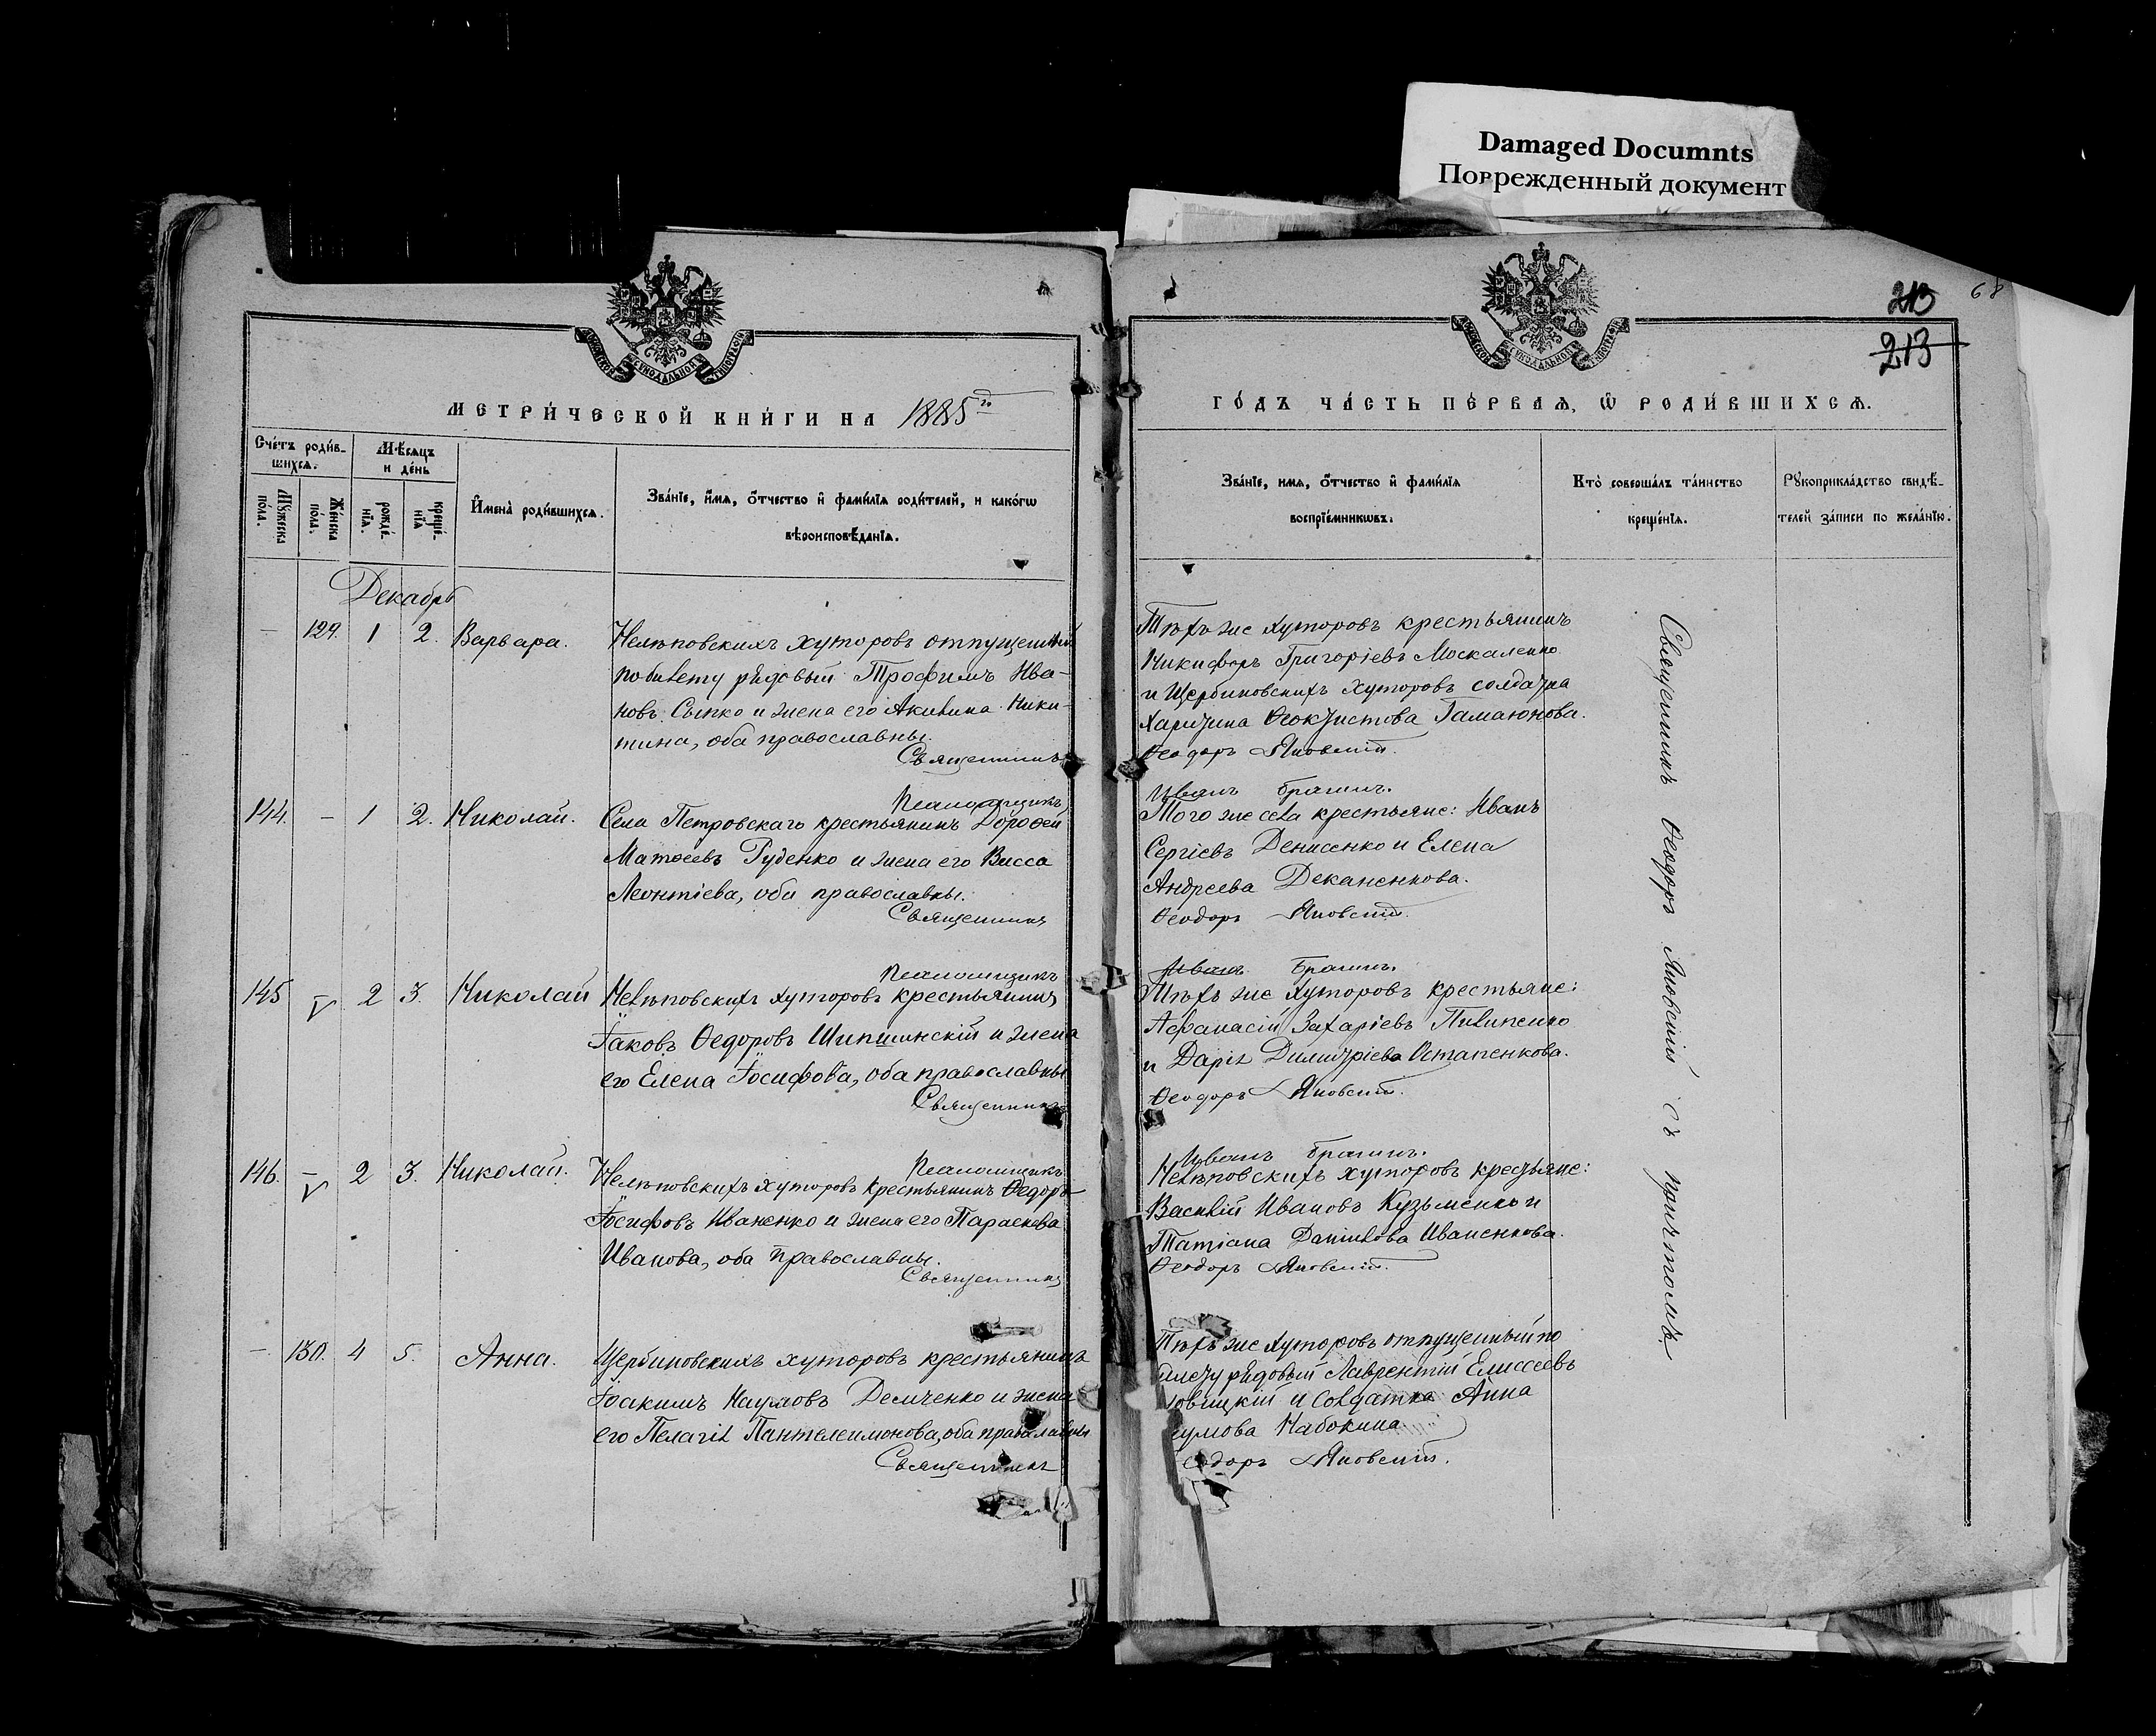 Damaged Documnts
Поврежденный документ
68
213
213
МЕТРИ́ЧЕСКОЙ КНИ́ГИ НА 1885й
ГО́ДЪ ЧА́СТЬ ПЕ́РВАЯ, Ѡ РОДИ́ВШИХСЯ.
Сче́тъ роди́в-
шихся.
Мѣ́сяцъ
и де́нь
Мꙋжеска по́ла.
Же́нска по́ла.
рожде́-нїя.
креще́-нїя
И҆мена̀ роди́вшихся.
Зва́нїе, и҆́мя, ѻ҆́тчество и҆ фами́лїя роди́телей, и како́гѡ
вѣроисповѣ́данїя.
Зва́нїе, имя, ѻ҆́тчество и҆ фами́лїя
воспрїе́мникѡвъ.
Кто̀ соверша́лъ та́инство
креще́нїя.
Рꙋкоприкла́дство свидѣ́-
телей за́писи по жела́нїю.
Декабрь
— 129. 1 2. Варвара.
Нелѣповскихъ хуторовъ отпущенный
по билету рядовый Трофимъ Ива-
новъ Сыпко и жена его Акилина Ники-
тина, оба православны.
Священникъ
Тѣхъ же хуторовъ крестьянинъ
Никифоръ Григоріевъ Москаленко
и Щербиновскихъ хуторовъ солдатка
Харитина Ѳеоктистова Гамаюнова.
Ѳеодоръ Яновскій.
Псаломщикъ
Иванъ Брагинъ.
144. — 1 2. Николай.
Села Петровскаго крестьянинъ Дороѳей
Матѳеевъ Руденко и жена его Васса
Леонтіева, оба православны.
Священникъ
Того же села крестьяне: Иванъ
Сергіевъ Денисенко и Елена
Андреева Деканенкова.
Ѳеодоръ Яновскій.
Псаломщикъ
Иванъ Брагинъ.
145 V 2 3. Николай
Нелѣповскихъ хуторовъ крестьянинъ
Іаковъ Ѳедоровъ Шипилинскій и жена
его Елена Іосифова, оба православны
Священникъ
Тѣхъ же хуторовъ крестьяне:
Аѳанасій Захаріевъ Пилипенко
и Дарія Димитріева Остапенкова.
Ѳеодоръ Яновскій.
Псаломщикъ
Иванъ Брагинъ.
146. — V 2 3. Николай.
Нелѣповскихъ хуторовъ крестьянинъ Ѳедоръ
Іосифовъ Иваненко и жена его Параскева
Иванова, оба православны.
Священникъ
Нелѣповскихъ хуторовъ крестьяне:
Василій Ивановъ Кузьменко и
Татіана Даніилова Иваненкова.
Ѳеодоръ Яновскій.
— 130. 4 5. Анна.
Щербиновскихъ хуторовъ крестьянинъ
Іоакимъ Наумовъ Демченко и жена
его Пелагія Пантелеимонова, оба православны
Священникъ
Тѣхъ же хуторовъ отпущенный по
билету рядовый Лаврентій Елисеевъ
и солдатка Анна
Набокина
Ѳеодоръ Яновскій.
Священникъ Ѳеодоръ Яновскій съ причтомъ